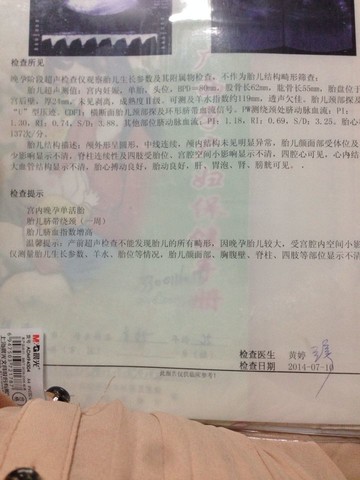 检查所见
晚孕阶段超声检查仅观察胎儿生长参数及其附属物检查，不作为胎儿结构畸形筛查：
胎儿超声测值：宫内妊娠，单胎，头位，
股骨长62mm，肱骨长55mm，胎盘位于
宫后壁，厚28mm，未见剥离，成熟度II级，可测及羊水指数约119mm，透声欠佳，胎儿颈部探及
“U”型压迹，CDFI：横断面胎儿颈部探及环形脐带血流信号，PW测绕颈处脐动脉血流：PI：
1.30，RI：0.74，S/D：3.88，其他部位脐动脉血流：PI：1.18，RI：0.69，S/D：3.25，胎心
137次/分。
胎儿结构描述：颅外形呈圆形，中线连续，颅内结构未见明显异常，胎儿颜面部受体位及
少影响显示不清，脊柱连续性及四肢受胎位、宫腔空间小影响显示不清，四腔心可见，心内结
大血管结构显示不清，胎心搏动良好，胎动良好，肝、胃泡、肾、膀胱可见．．
检查提示
宫内晚孕单活胎
胎儿脐带绕颈（一周）
胎儿脐血指数增高
温馨提示：产前超声检查不能发现胎儿的所有畸形，因晚孕胎儿较大，受宫腔内空间小影
仅测量胎儿生长参数、羊水、胎位等情况，胎儿颜面部、胸腹壁、脊柱、四肢等部位显示不清
检查医生 黄婷
检查日期 2014-07-10
此报告仅供临床参考！
M&G晨光
保健手册